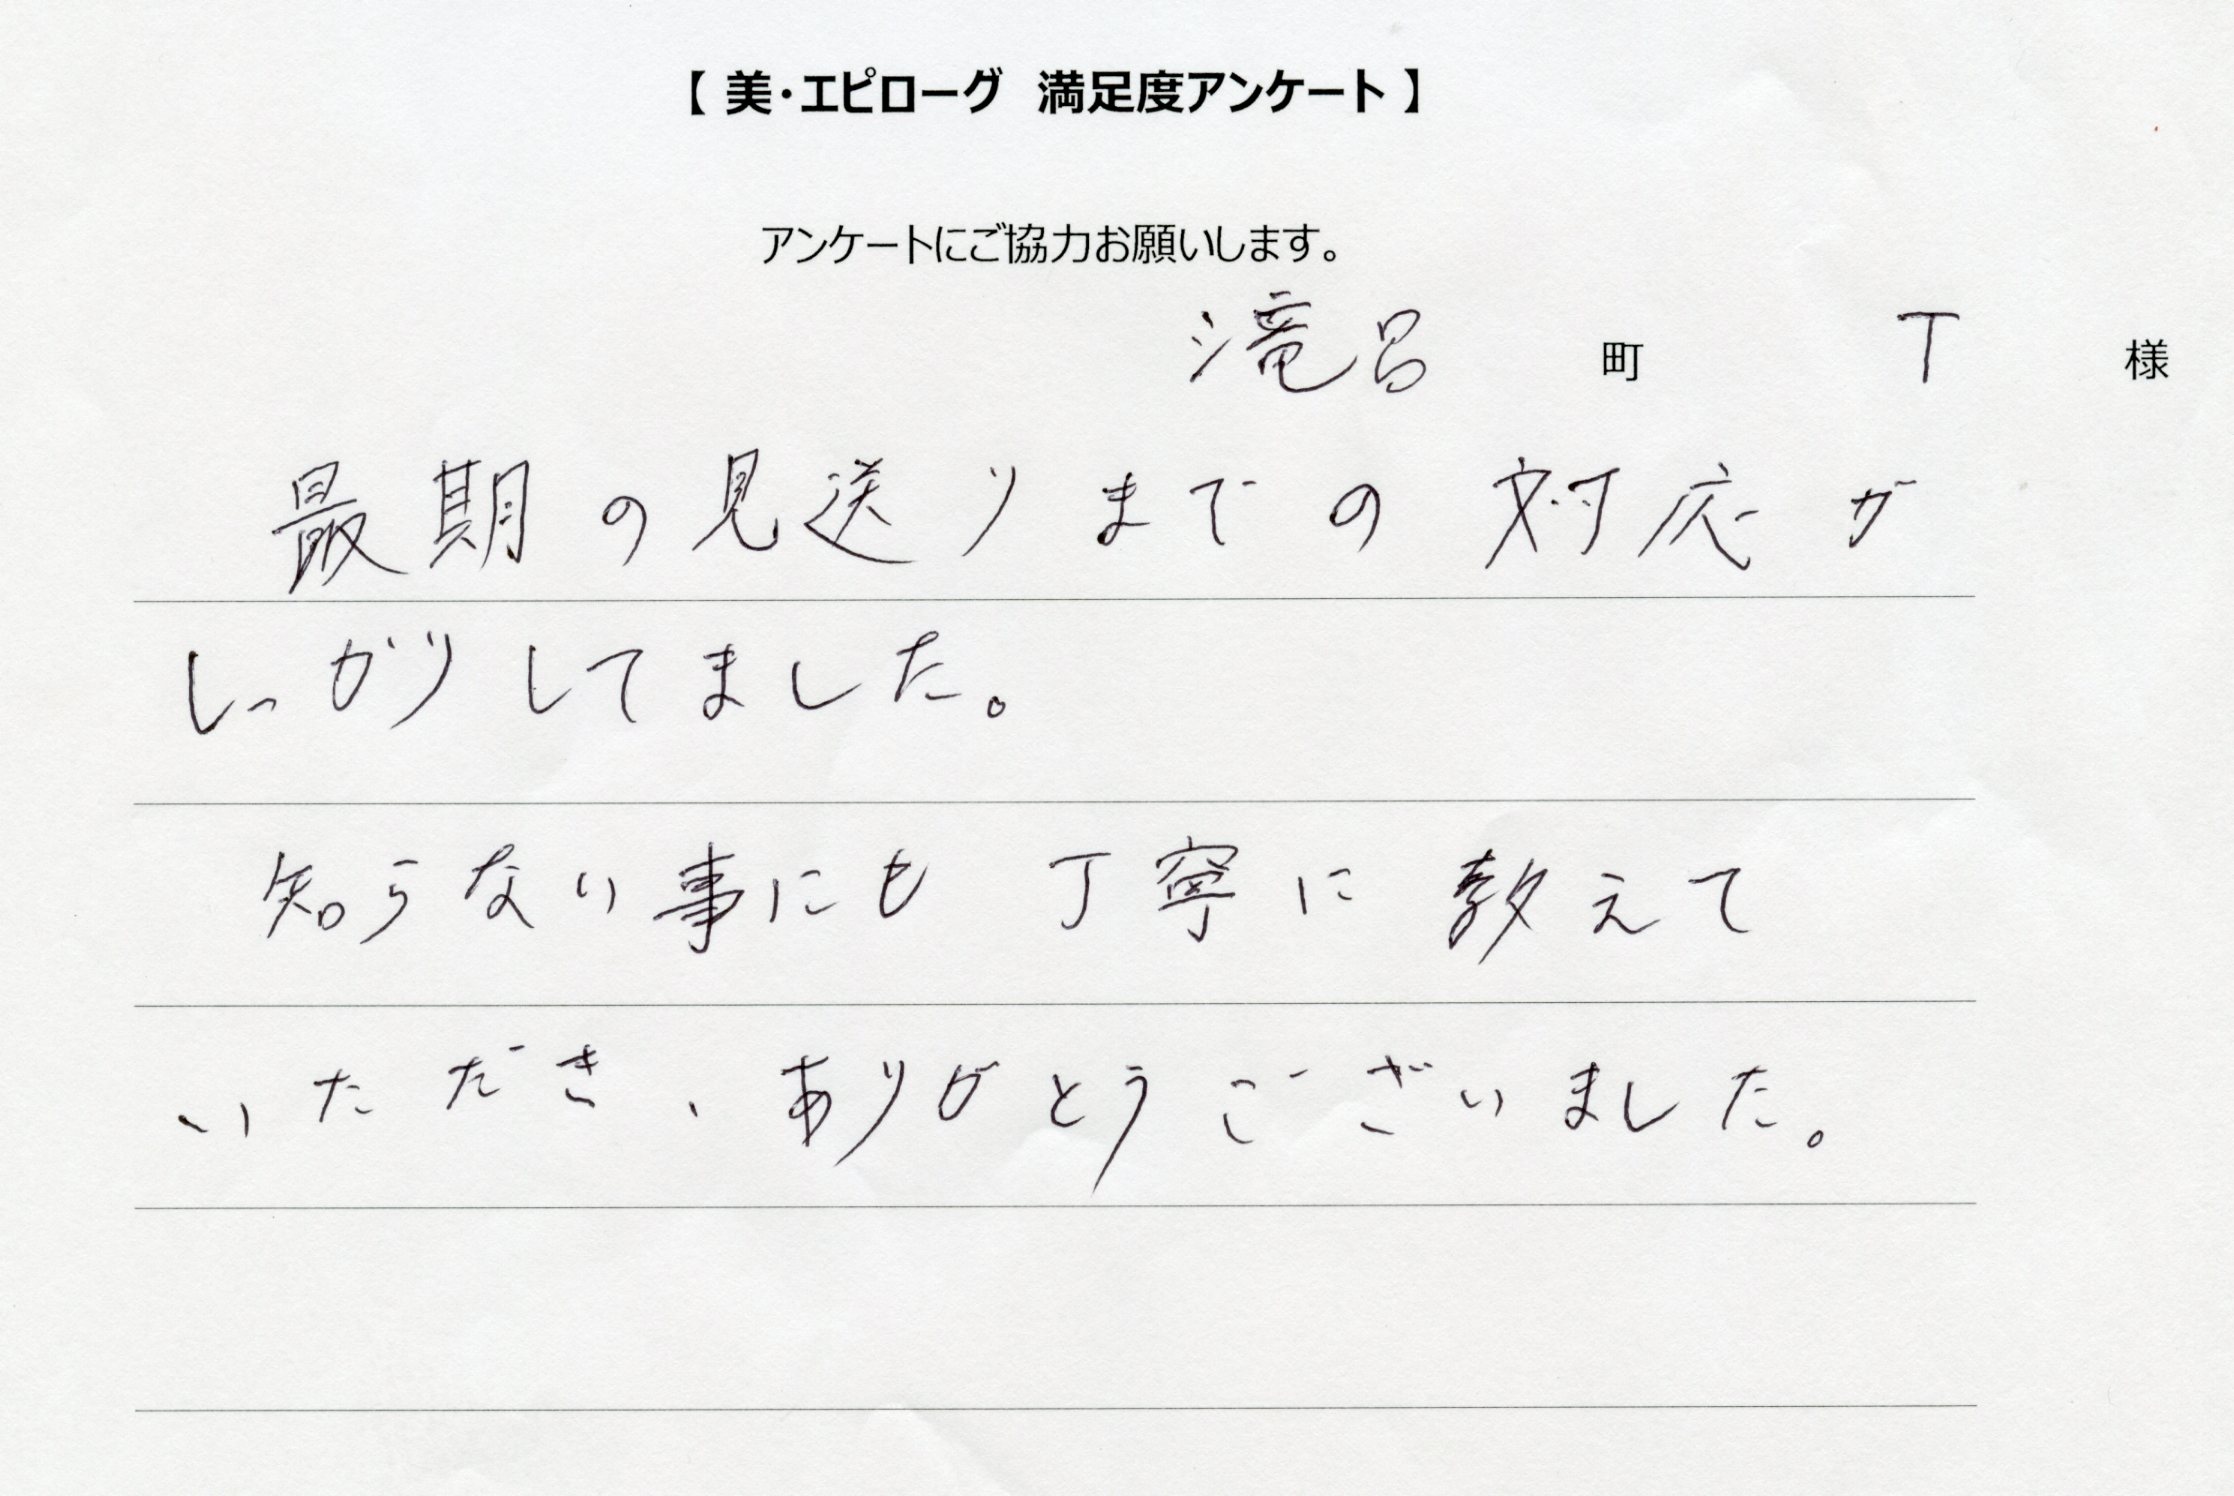 【 美・エピローグ　満足度アンケート 】
アンケートにご協力お願いします。
滝呂 町 T 様
最期の見送りまでの対応が
しっかりしてました。
知らない事にも丁寧に教えて
いただき、ありがとうございました。